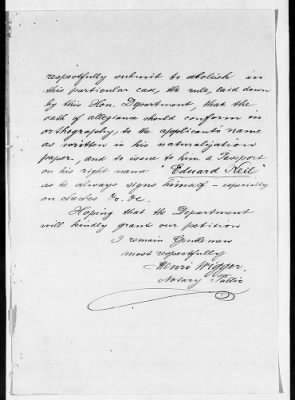 respectfully submit to abolish in
this particular case, the rule, laid down
by this Hon. Department, that the
oath of allegiance should conform in
orthography, to the applicants name
as written in his naturalization
paper, and to issue to him a Passport
on his right name "Edward Keil"
as he always signs himself – especially
on &c. &c.
Hoping that the Department
will kindly grant our petition
I remain Gentlemen
most respectfully
Henri Wigger
Notary Public